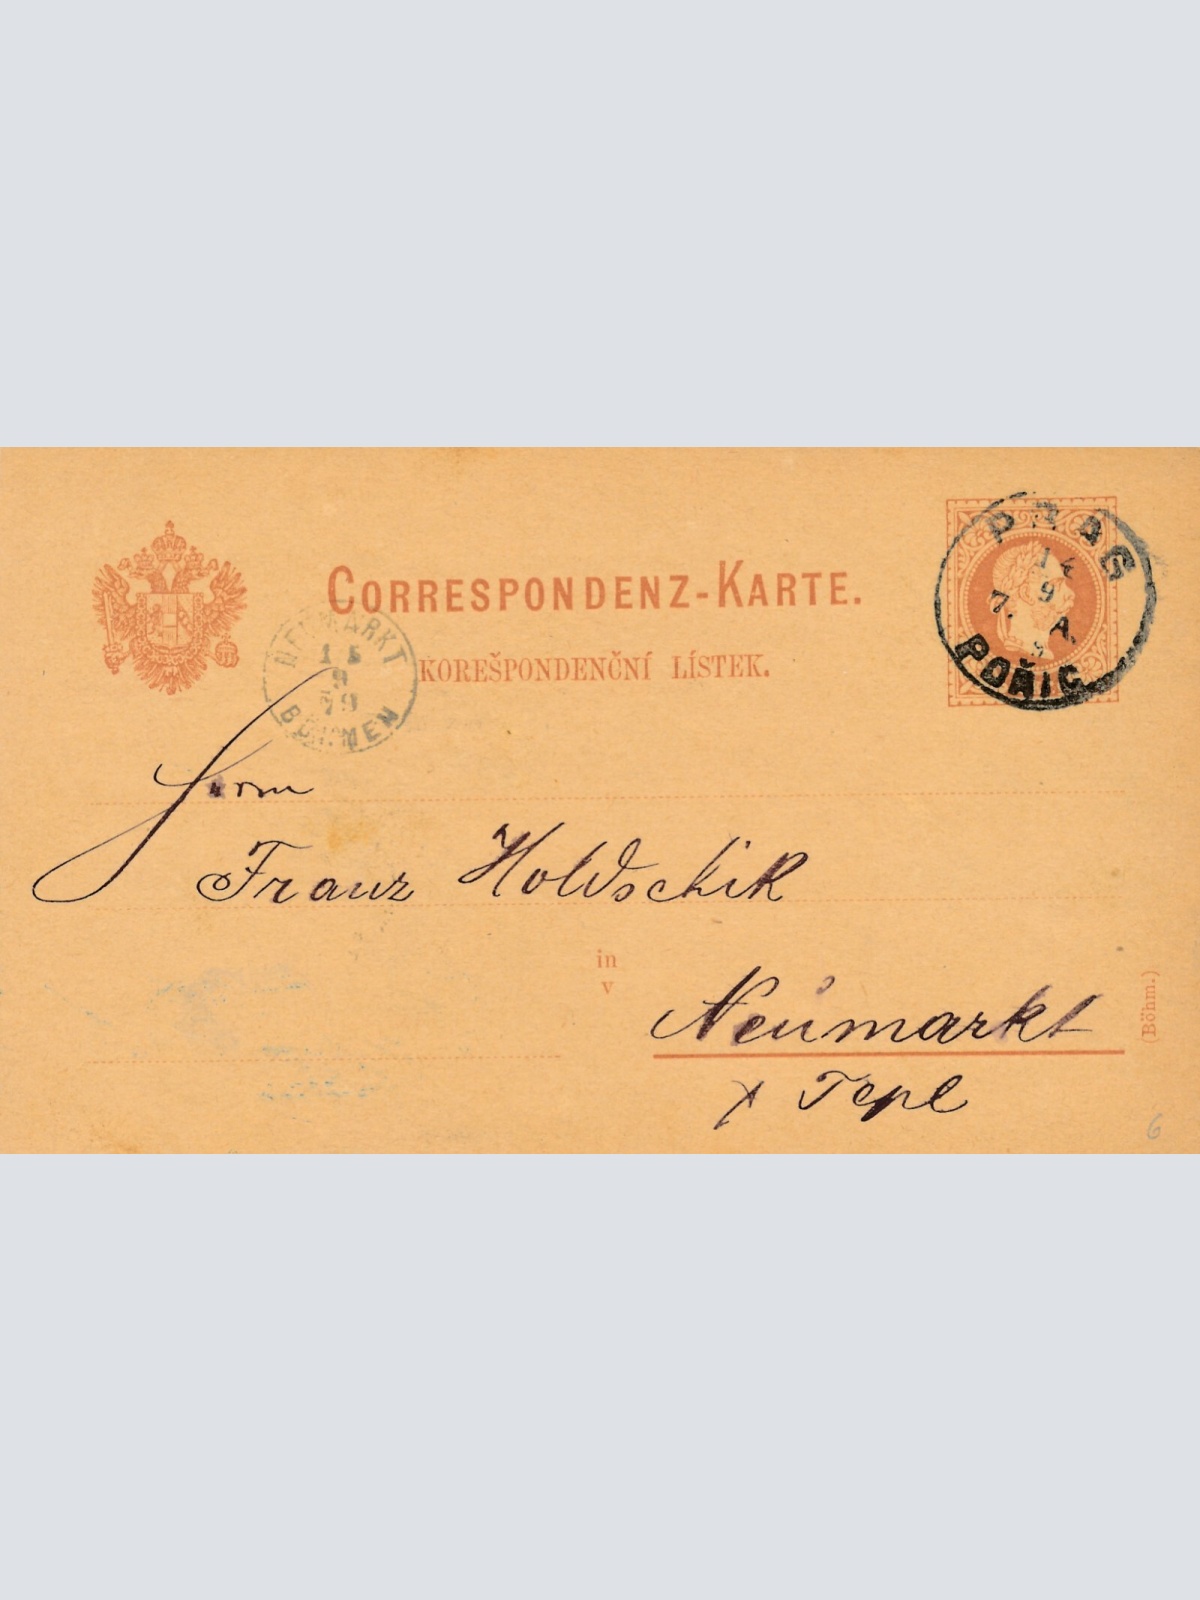 CORRESPONDENZ-KARTE.
KOREŠPONDENČNÍ LÍSTEK.
PRAG
14
9
7. A.
POŘIC
NEUMARKT
15
9
79
BÖHMEN
Herrn
Franz Holdschik
in
v
Neumarkt
x Tepl
(Böhm.)
6